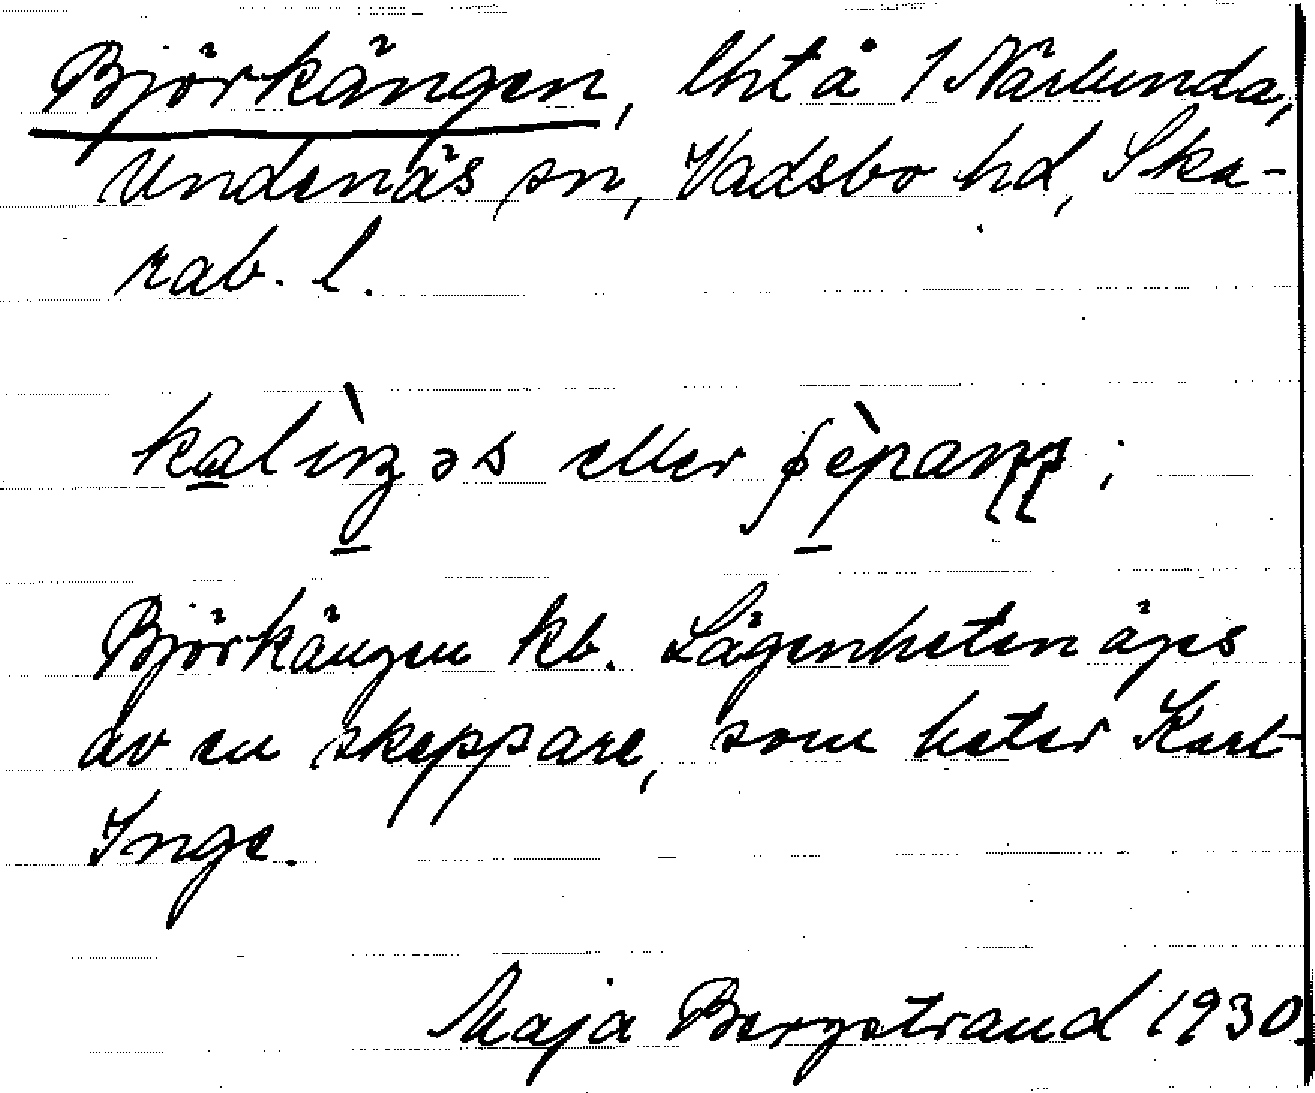 Björkängen, lht å 1 Närlunda,
Undenäs sn, Vadsbo hd, Ska-
rab. l.
kalìŋəs eller
Björkängen kb. Lägenheten äges
av en skeppare, som heter Karl
Inge.
Maja Bergstrand 1930.